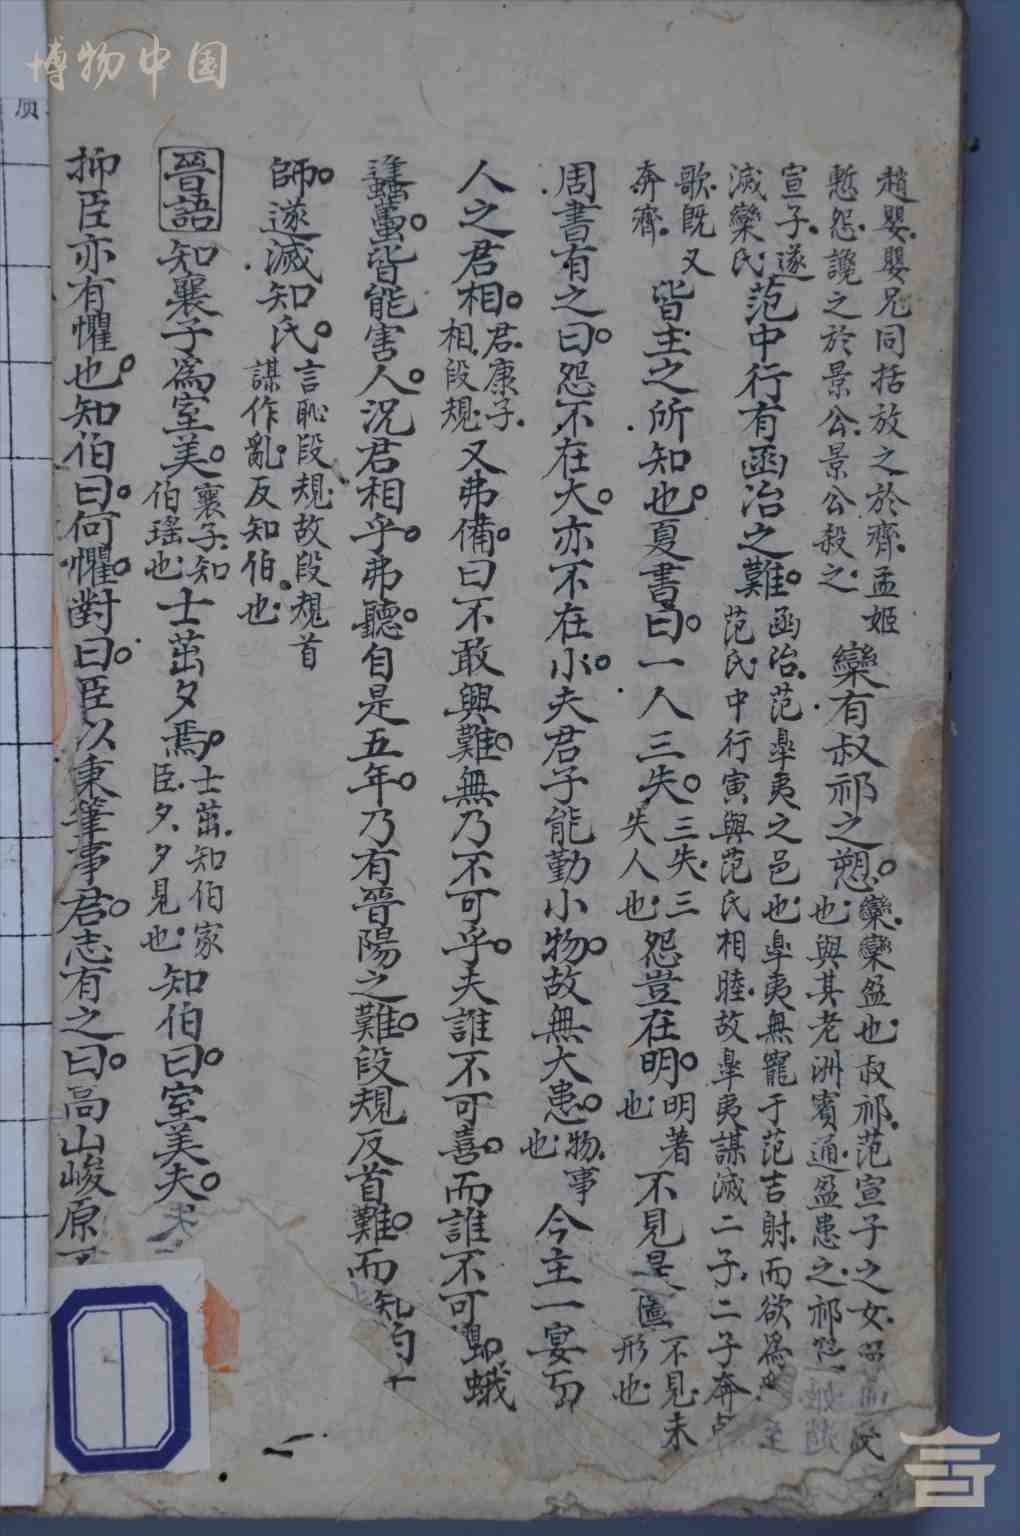 博物中国
趙嬰嬰兄同括放之於齊孟姬
慙怨讒之於景公景公殺之
欒有叔祁之愬
欒欒盈也叔祁范宣子之女
也與其老洲賓通盈患之祁愬
宣子遂
滅欒氏
范中行有函冶之難
函冶范臯夷之邑也臯夷無寵于范吉射而欲爲
范氏中行寅與范氏相睦故臯夷謀滅二子二子奔
歌既又
奔齊
皆主之所知也。夏書曰。一人三失。
三失三
失人也
怨豈在明。
明著
也
不見是圖
不見未
形也
周書有之曰。怨不在大。亦不在小。夫君子能勤小物。故無大患。
物事
也
今主一宴而
人之君相。
君康子
相段規
又弗備。曰不敢興難。無乃不可乎。夫誰不可喜。而誰不可蛾
蠭蠆。皆能害人。況君相乎。弗聽。自是五年。乃有晉陽之難。段規反首難。而知伯
師。遂滅知氏。
言恥段規故段規首
謀作亂反知伯也
晉語知襄子爲室美。
襄子知
伯瑤也
士茁夕焉。
士茁知伯家
臣夕夕見也
知伯曰。室美夫。
抑臣亦有懼也。知伯曰。何懼。對曰。臣以秉筆事君。志有之曰。高山峻原